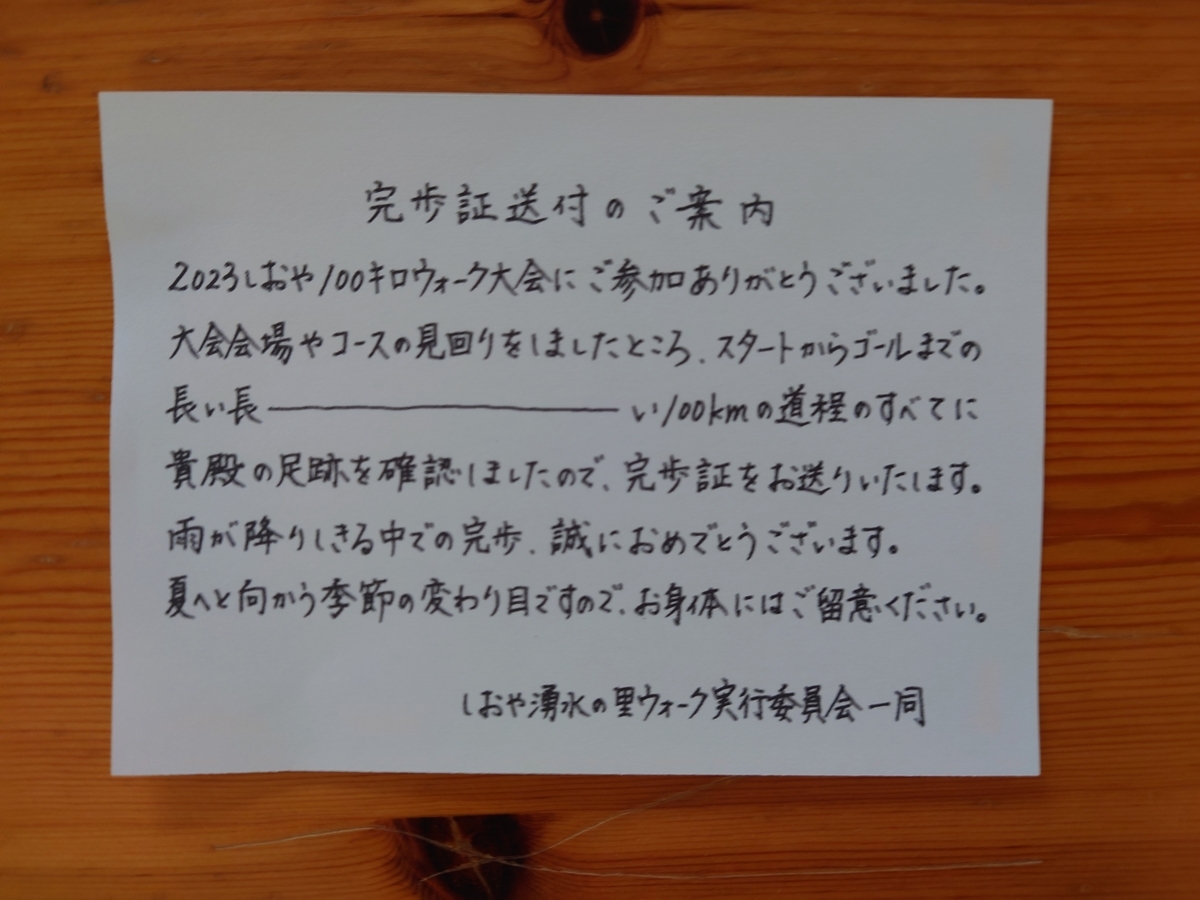 完歩証送付のご案内
2023しおや100キロウォーク大会にご参加ありがとうございました。
大会会場やコースの見回りをしましたところ、スタートからゴールまでの
長い長――――――――い100kmの道程のすべてに
貴殿の足跡を確認しましたので、完歩証をお送りいたします。
雨が降りしきる中での完歩、誠におめでとうございます。
夏へと向かう季節の変わり目ですので、お身体にはご留意ください。
しおや湧水の里ウォーク実行委員会一同